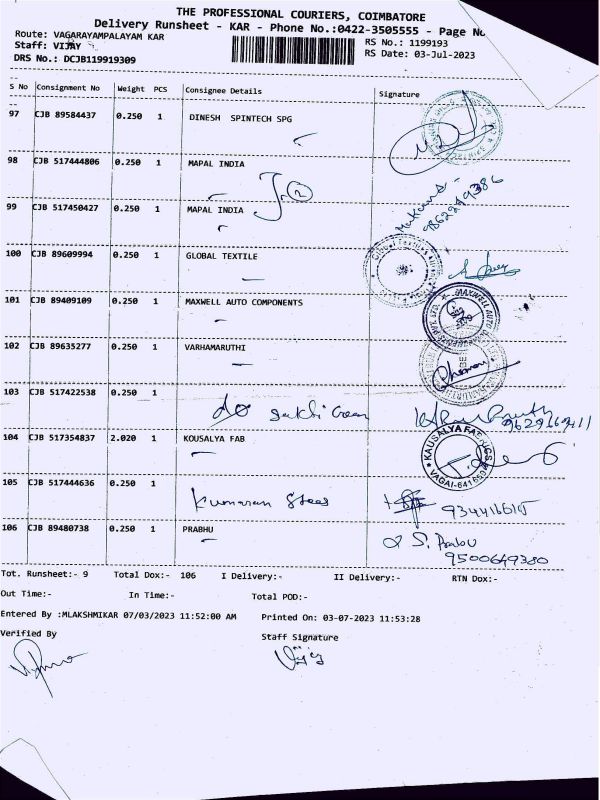 THE PROFESSIONAL COURIERS, COIMBATORE
Delivery Runsheet - KAR - Phone No.:0422-3505555 - Page No
Route: VAGARAYAMPALAYAM KAR
RS No.: 1199193
Staff: VIJAY
RS Date: 03-Jul-2023
DRS No.: DCJB119919309
S No Consignment No Weight PCS Consignee Details Signature
97 CJB 89584437 0.250 1 DINESH SPINTECH SPG
98 CJB 517444806 0.250 1 MAPAL INDIA
99 CJB 517450427 0.250 1 MAPAL INDIA
100 CJB 89609994 0.250 1 GLOBAL TEXTILE
101 CJB 89409109 0.250 1 MAXWELL AUTO COMPONENTS
102 CJB 89635277 0.250 1 VARHAMARUTHI
103 CJB 517422538 0.250 1
104 CJB 517354837 2.020 1 KOUSALYA FAB
105 CJB 517444636 0.250 1 Kumaran Stees
106 CJB 89480738 0.250 1 PRABHU
9500649380
Tot. Runsheet:- 9 Total Dox:- 106 I Delivery:- II Delivery:- RTN Dox:-
Out Time:- In Time:- Total POD:-
Entered By :MLAKSHMIKAR 07/03/2023 11:52:00 AM Printed On: 03-07-2023 11:53:28
Verified By Staff Signature